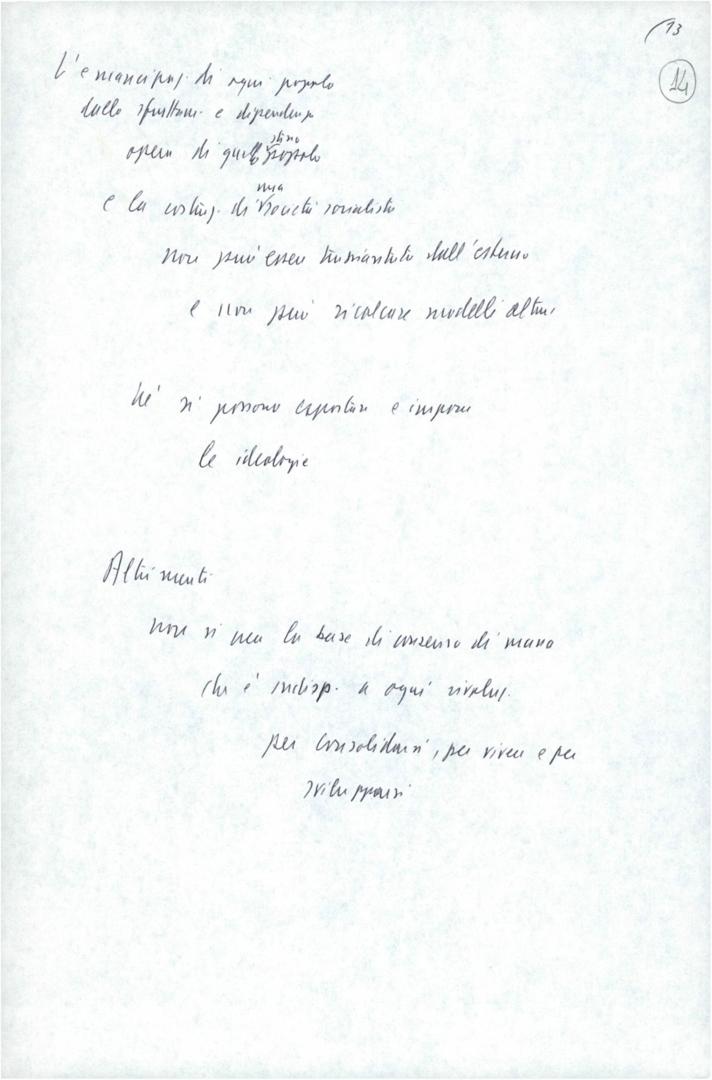 13
14
L'emancipaz. di ogni popolo
dallo sfruttam. e dipendenza
opera di quello stesso popolo
e la costruz. di una società socialista
non può essere trapiantata dall'esterno
e non può ricalcare modelli altrui
Né si possono esportare e imporre
le ideologie
Altrimenti
non si crea la base di consenso di massa
che è indisp. a ogni rivoluz.
per consolidarsi, per vivere e per
svilupparsi